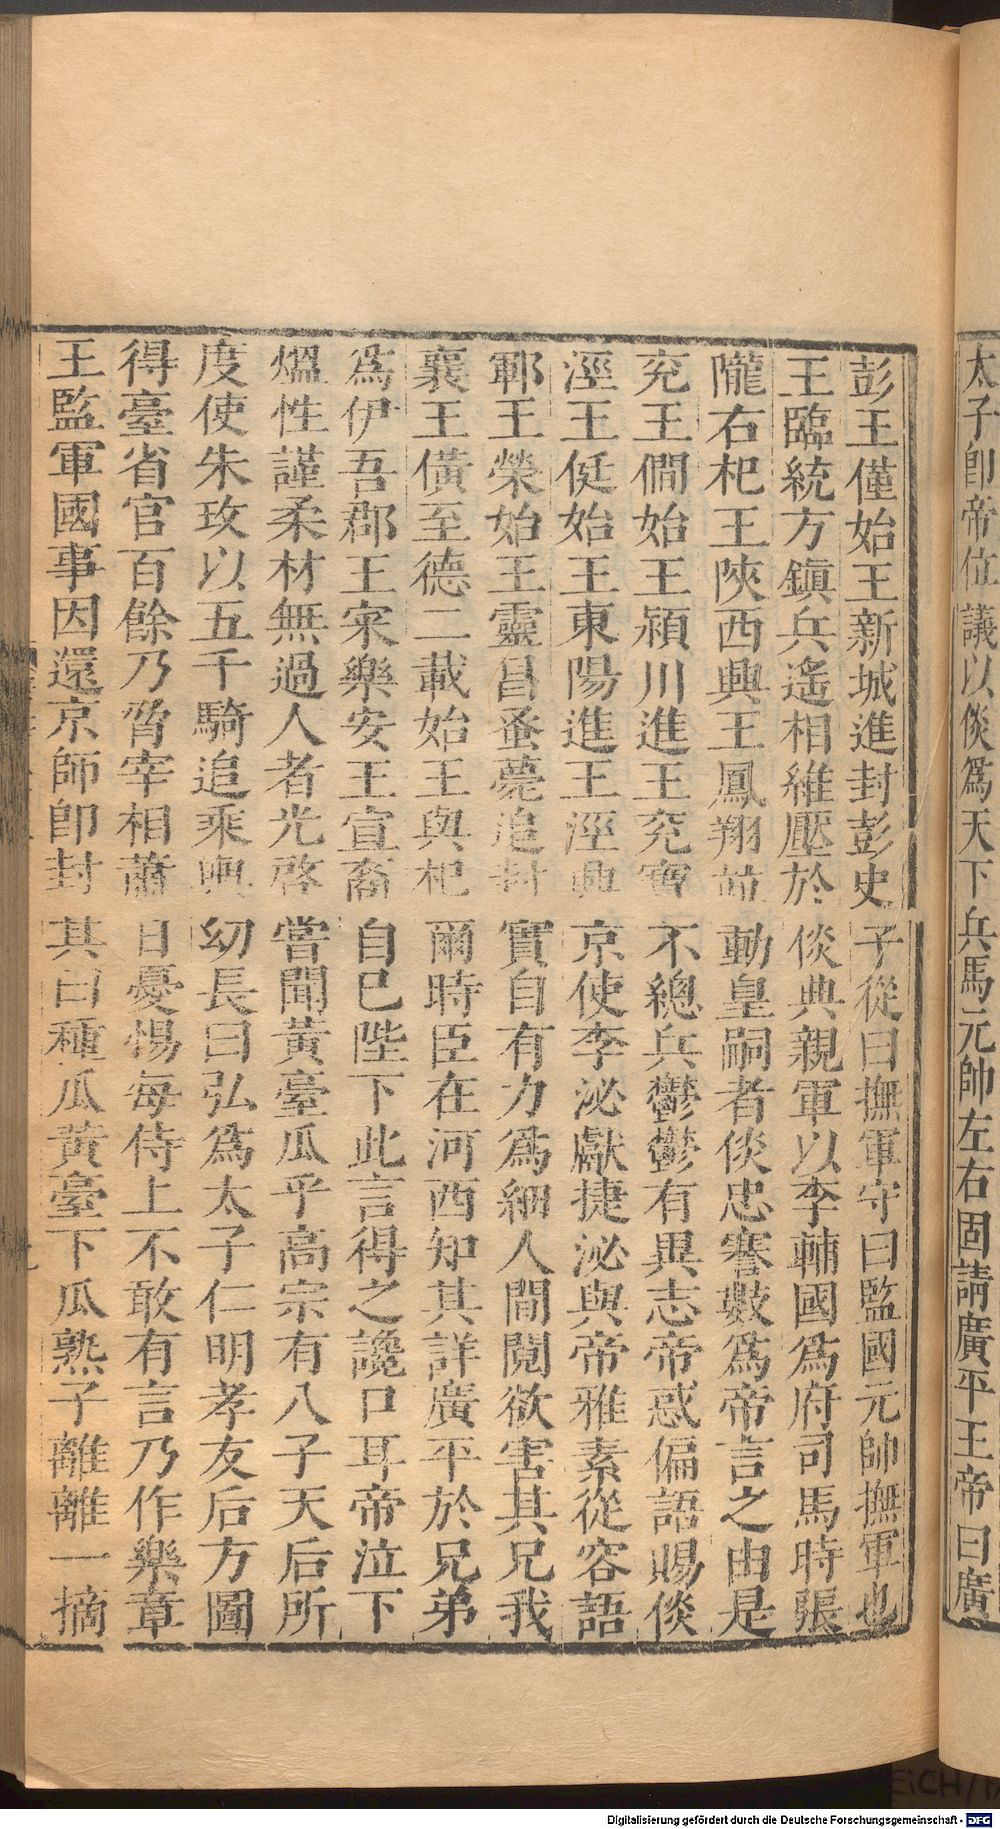 太子卽帝位議以倓爲天下兵馬元帥左右固請廣平王帝曰廣
彭王僅始王新城進封彭史子從曰撫軍守曰監國元帥撫軍也
王臨統方鎮兵遙相維壓於倓典親軍以李輔國爲府司馬時張
隴右杞王陝西興王鳳翔並動皇嗣者倓忠謇數爲帝言之由是
兗王僩始王潁川進王兗寶不總兵鬱鬱有異志帝惑偏語賜倓
涇王侹始王東陽進王涇興京使李泌獻捷泌與帝雅素從容語
鄆王榮始王靈昌蚤薨追封實自有力爲細人間鬩欲害其兄我
襄王僙至德二載始王與杞爾時臣在河西知其詳廣平於兄弟
爲伊吾郡王宷樂安王宣裔自已陛下此言得之讒口耳帝泣下
熅性謹柔材無過人者光啓嘗聞黃臺瓜乎高宗有八子天后所
度使朱玫以五千騎追乘輿幼長曰弘爲太子仁明孝友后方圖
得臺省官百餘乃脅宰相蕭日憂惕每侍上不敢有言乃作樂章
王監軍國事因還京師卽封其曰種瓜黃臺下瓜熟子離離一摘
Digitalisierung gefördert durch die Deutsche Forschungsgemeinschaft - DFG